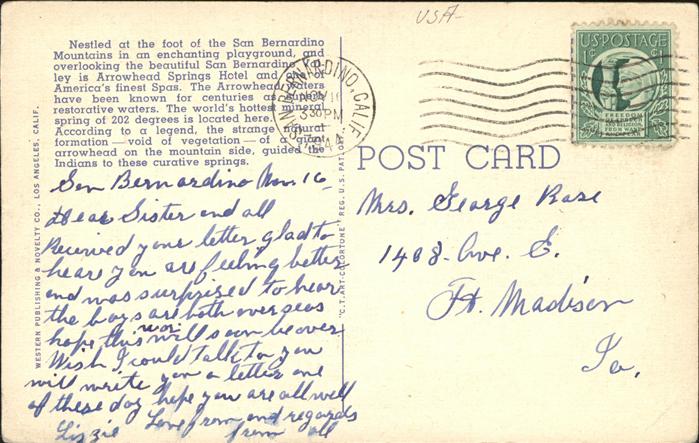 USA
Nestled at the foot of the San Bernardino
Mountains in an enchanting playground, and
overlooking the beautiful San Bernardino
ley is Arrowhead Springs Hotel and
America's finest Spas. The Arrowhead
have been known for centuries as
restorative waters. The world's hottest mineral
spring of 202 degrees is located here.
According to a legend, the strange natural
formation—void of vegetation—of a giant
arrowhead on the mountain side, guided the
Indians to these curative springs.
WESTERN PUBLISHING & NOVELTY CO., LOS ANGELES, CALIF.
"C.T. ART-COLORTONE" REG. U.S. PAT. OFF.
SAN BERNARDINO, CALIF.
NOV 16
PM
U.S. POSTAGE
1¢ 1¢
FREEDOM
OF SPEECH
AND RELIGION,
FROM WANT
AND FEAR
POST CARD
San Bernardino Nov. 16
Dear Sister and all
Received your letter glad to
hear you are feeling better
and was surprised to hear
the boys are both overseas
hope this war will soon be over
Wish I could talk to you
will write you a letter one
of these day hope you are all well
Love from and regards
Lizzie from all
Mrs. George Rase
1408-Ave. E.
Ft. Madison
Ia.